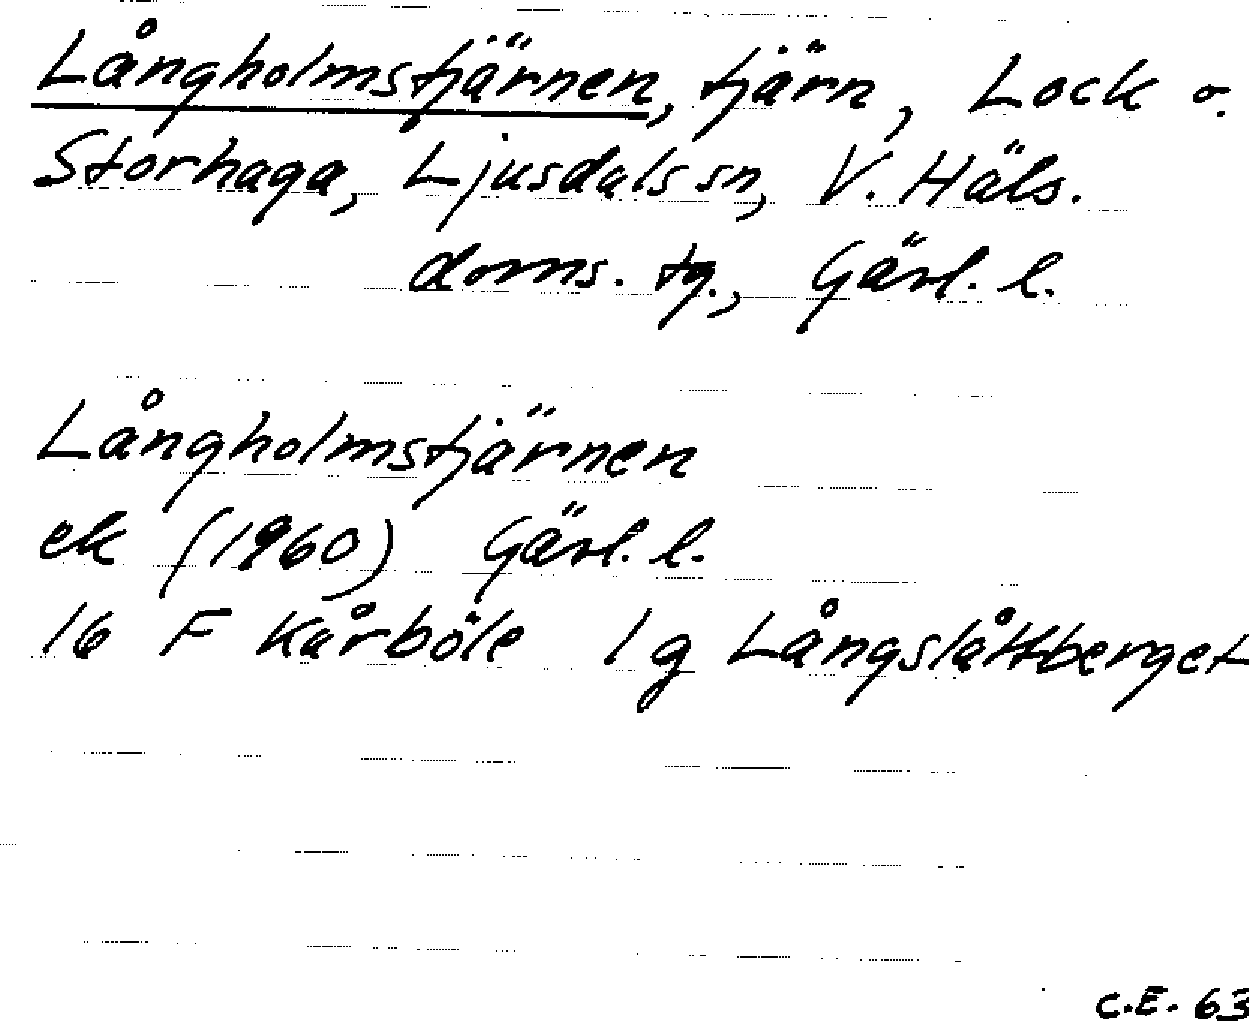 Långholmstjärnen, tjärn, Lock o.
Storhaga, Ljusdals sn, V. Häls.
doms. tg., Gävl. l.
Långholmstjärnen
ek (1960) Gävl. l.
16 F Kårböle 1 g Långslåttberget
C.E. 63